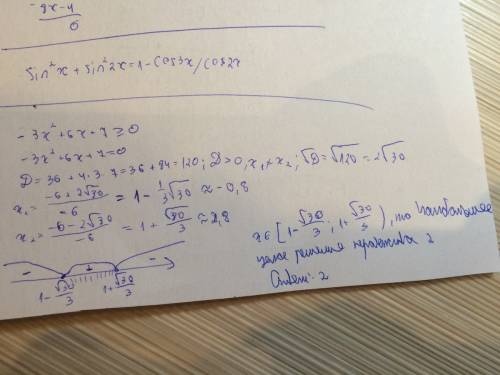 -8x-4
0
sin²x + sin²2x = 1 - cos3x/cos2x
-3x²+6x+7≥0
-3x²+6x+7=0
D = 36 + 4·3·7 = 36 + 84 = 120; D>0, x₁≠x₂; √D = √120 = 2√30
x₁ = (-6+2√30)/-6 = 1 - 1/3√30 ≈ -0,8
x₂ = (-6-2√30)/-6 = 1 + √30/3 ≈ 2,8
- + -
1-√30/3 1+√30/3
x∈[1-√30/3; 1+√30/3), то наибольшее
целое решение неравенства 2
Ответ: 2